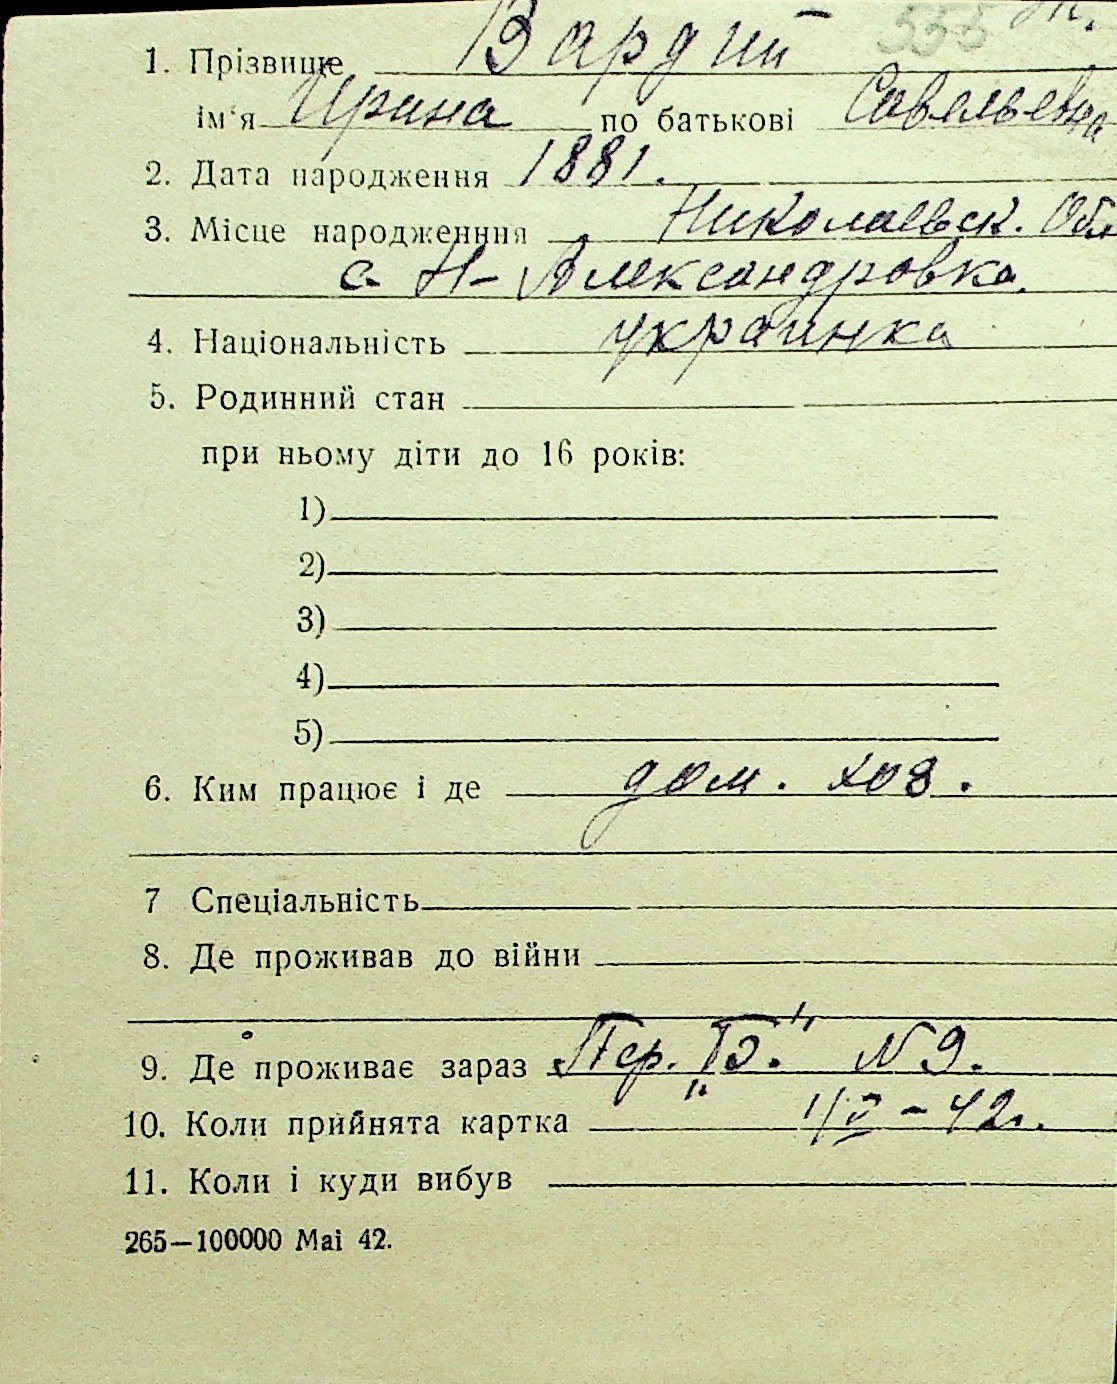 555
1. Прізвище Вардий
ім'я Ирина по батькові Савельевна
2. Дата народження 1881.
3. Місце народженння Николаевск. Обл
с. Н-Александровка.
4. Національність украинка
5. Родинний стан
при ньому діти до 16 років:
1)
2)
3)
4)
5)
6. Ким працює і де дом. хоз.
7 Спеціальність
8. Де проживав до війни
9. Де проживає зараз Пер. "Б." N 9.
10. Коли прийнята картка 1/V - 42г.
11. Коли і куди вибув
265—100000 Mai 42.